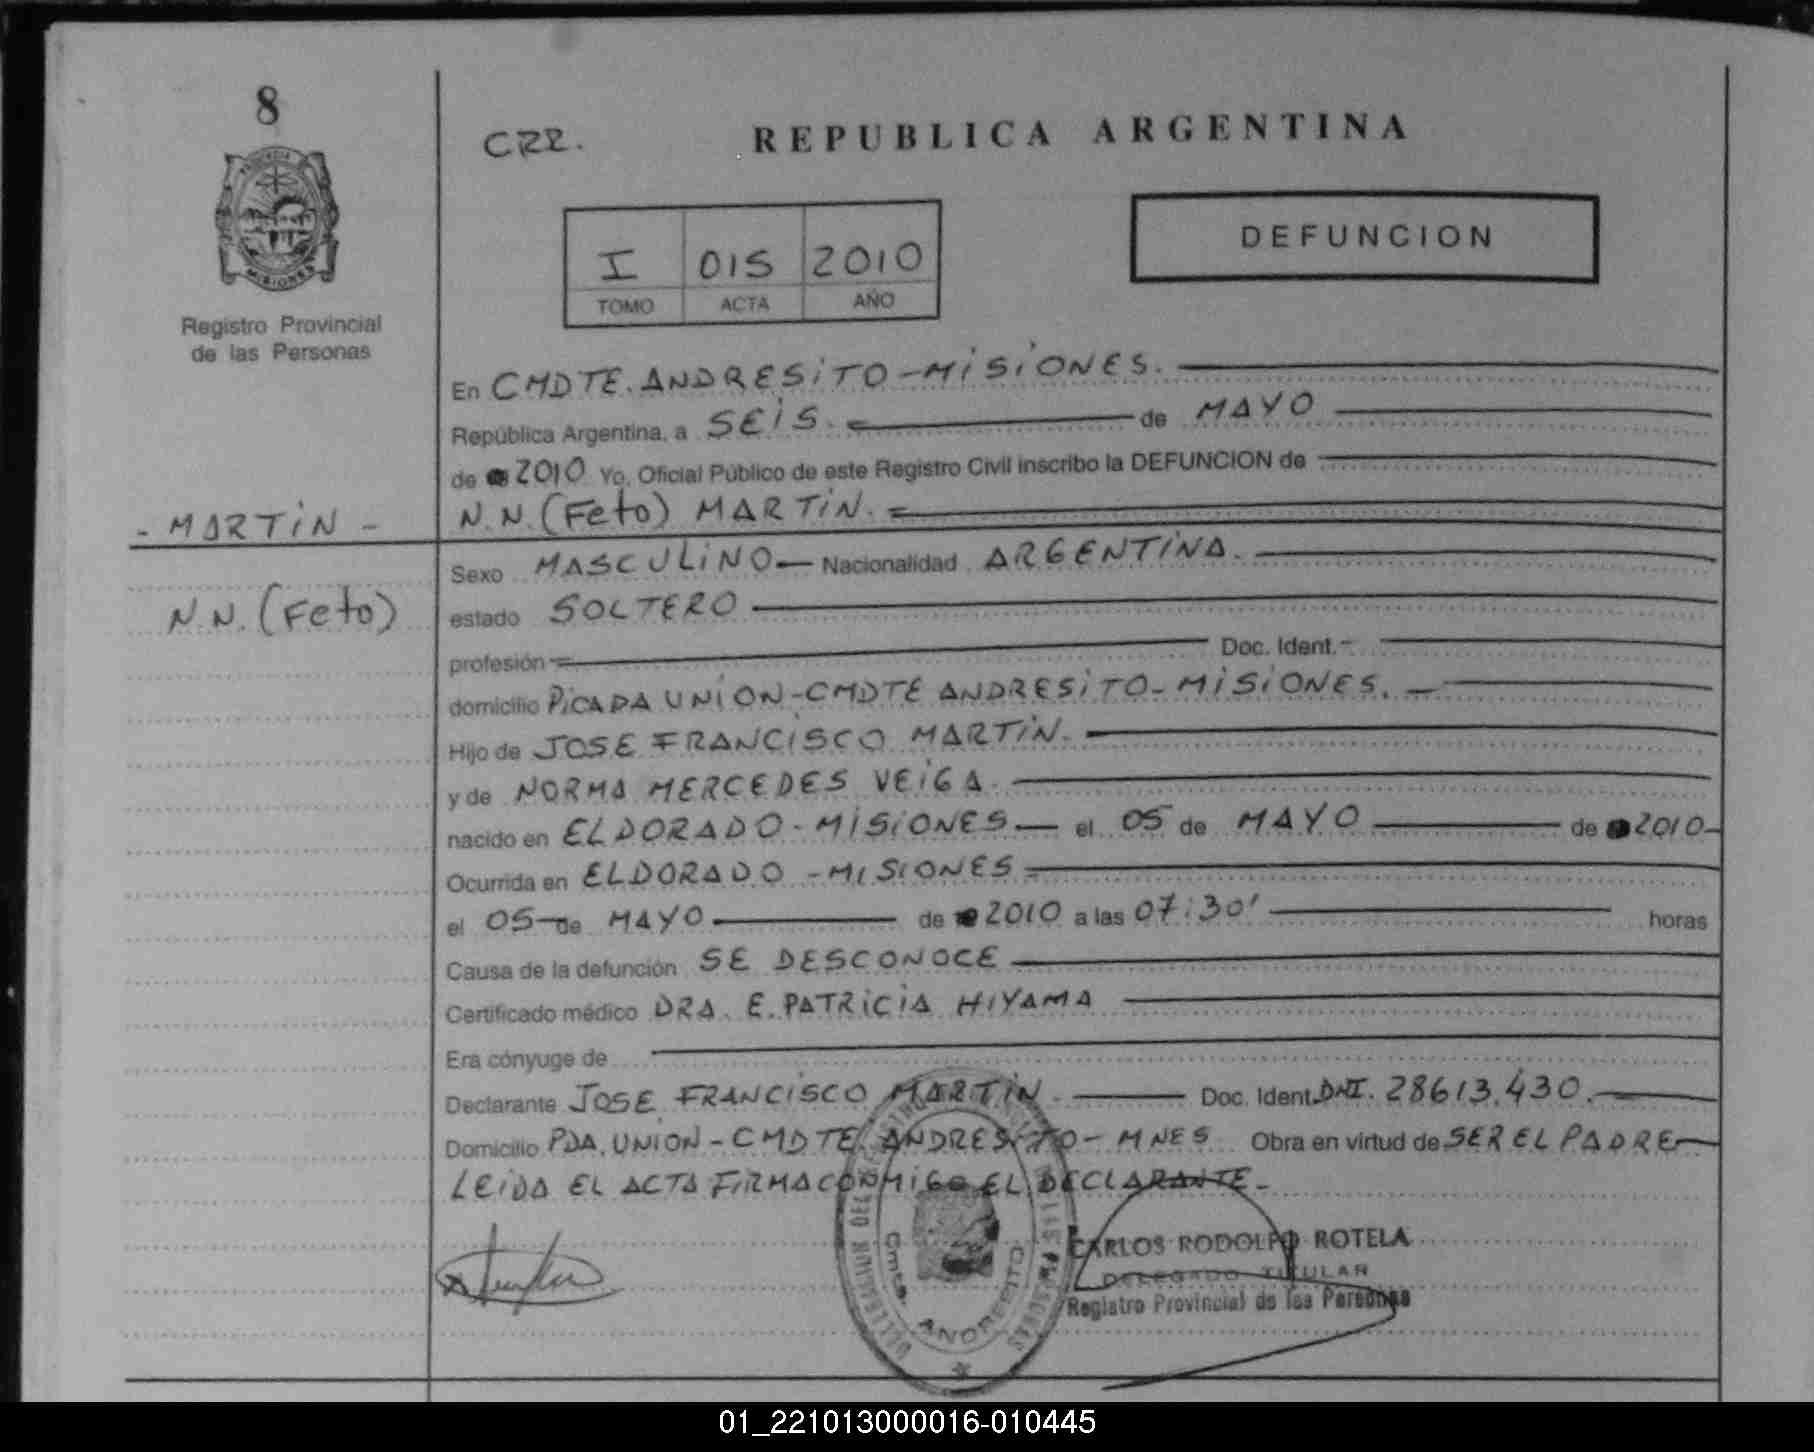 8
PROVINCIA
MISIONES
Registro Provincial
de las Personas
CRR.
REPUBLICA ARGENTINA
I 015 2010
TOMO ACTA AÑO
DEFUNCION
En CMDTE. ANDRESITO - MISIONES.
República Argentina, a SEIS. de MAYO
de 2010 Yo, Oficial Público de este Registro Civil inscribo la DEFUNCION de
- MARTIN -
N.N. (Feto) MARTIN.
N.N. (Feto)
Sexo MASCULINO Nacionalidad ARGENTINA.
estado SOLTERO
profesión Doc. Ident.
domicilio PICADA UNION - CMDTE ANDRESITO - MISIONES.
Hijo de JOSE FRANCISCO MARTIN.
y de NORMA MERCEDES VEIGA.
nacido en ELDORADO - MISIONES el 05 de MAYO de 2010
Ocurrida en ELDORADO - MISIONES
el 05 de MAYO de 2010 a las 07:30' horas
Causa de la defunción SE DESCONOCE
Certificado médico DRA. E. PATRICIA HIYAMA
Era cónyuge de
Declarante JOSE FRANCISCO MARTIN. Doc. Ident. DNI. 28613.430.
Domicilio PDA. UNION - CMDTE ANDRESITO - MNES Obra en virtud de SER EL PADRE
LEIDA EL ACTA FIRMA CONMIGO EL DECLARANTE.
Cmte.
ANDRESITO
CARLOS RODOLFO ROTELA
DELEGADO TITULAR
Registro Provincial de las Personas
01_221013000016-010445